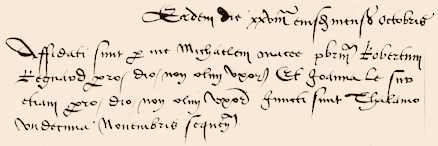 Eodem die xxviii ejusd mensis Octobris
Affidati sunt p me Michaelem macee pbrm Robertum
Regnard pro dio non olim uxor Et Joanna le sup
etiam pro dio non olim uxor Juncti sunt Thalamo
undecima Novembris sequen